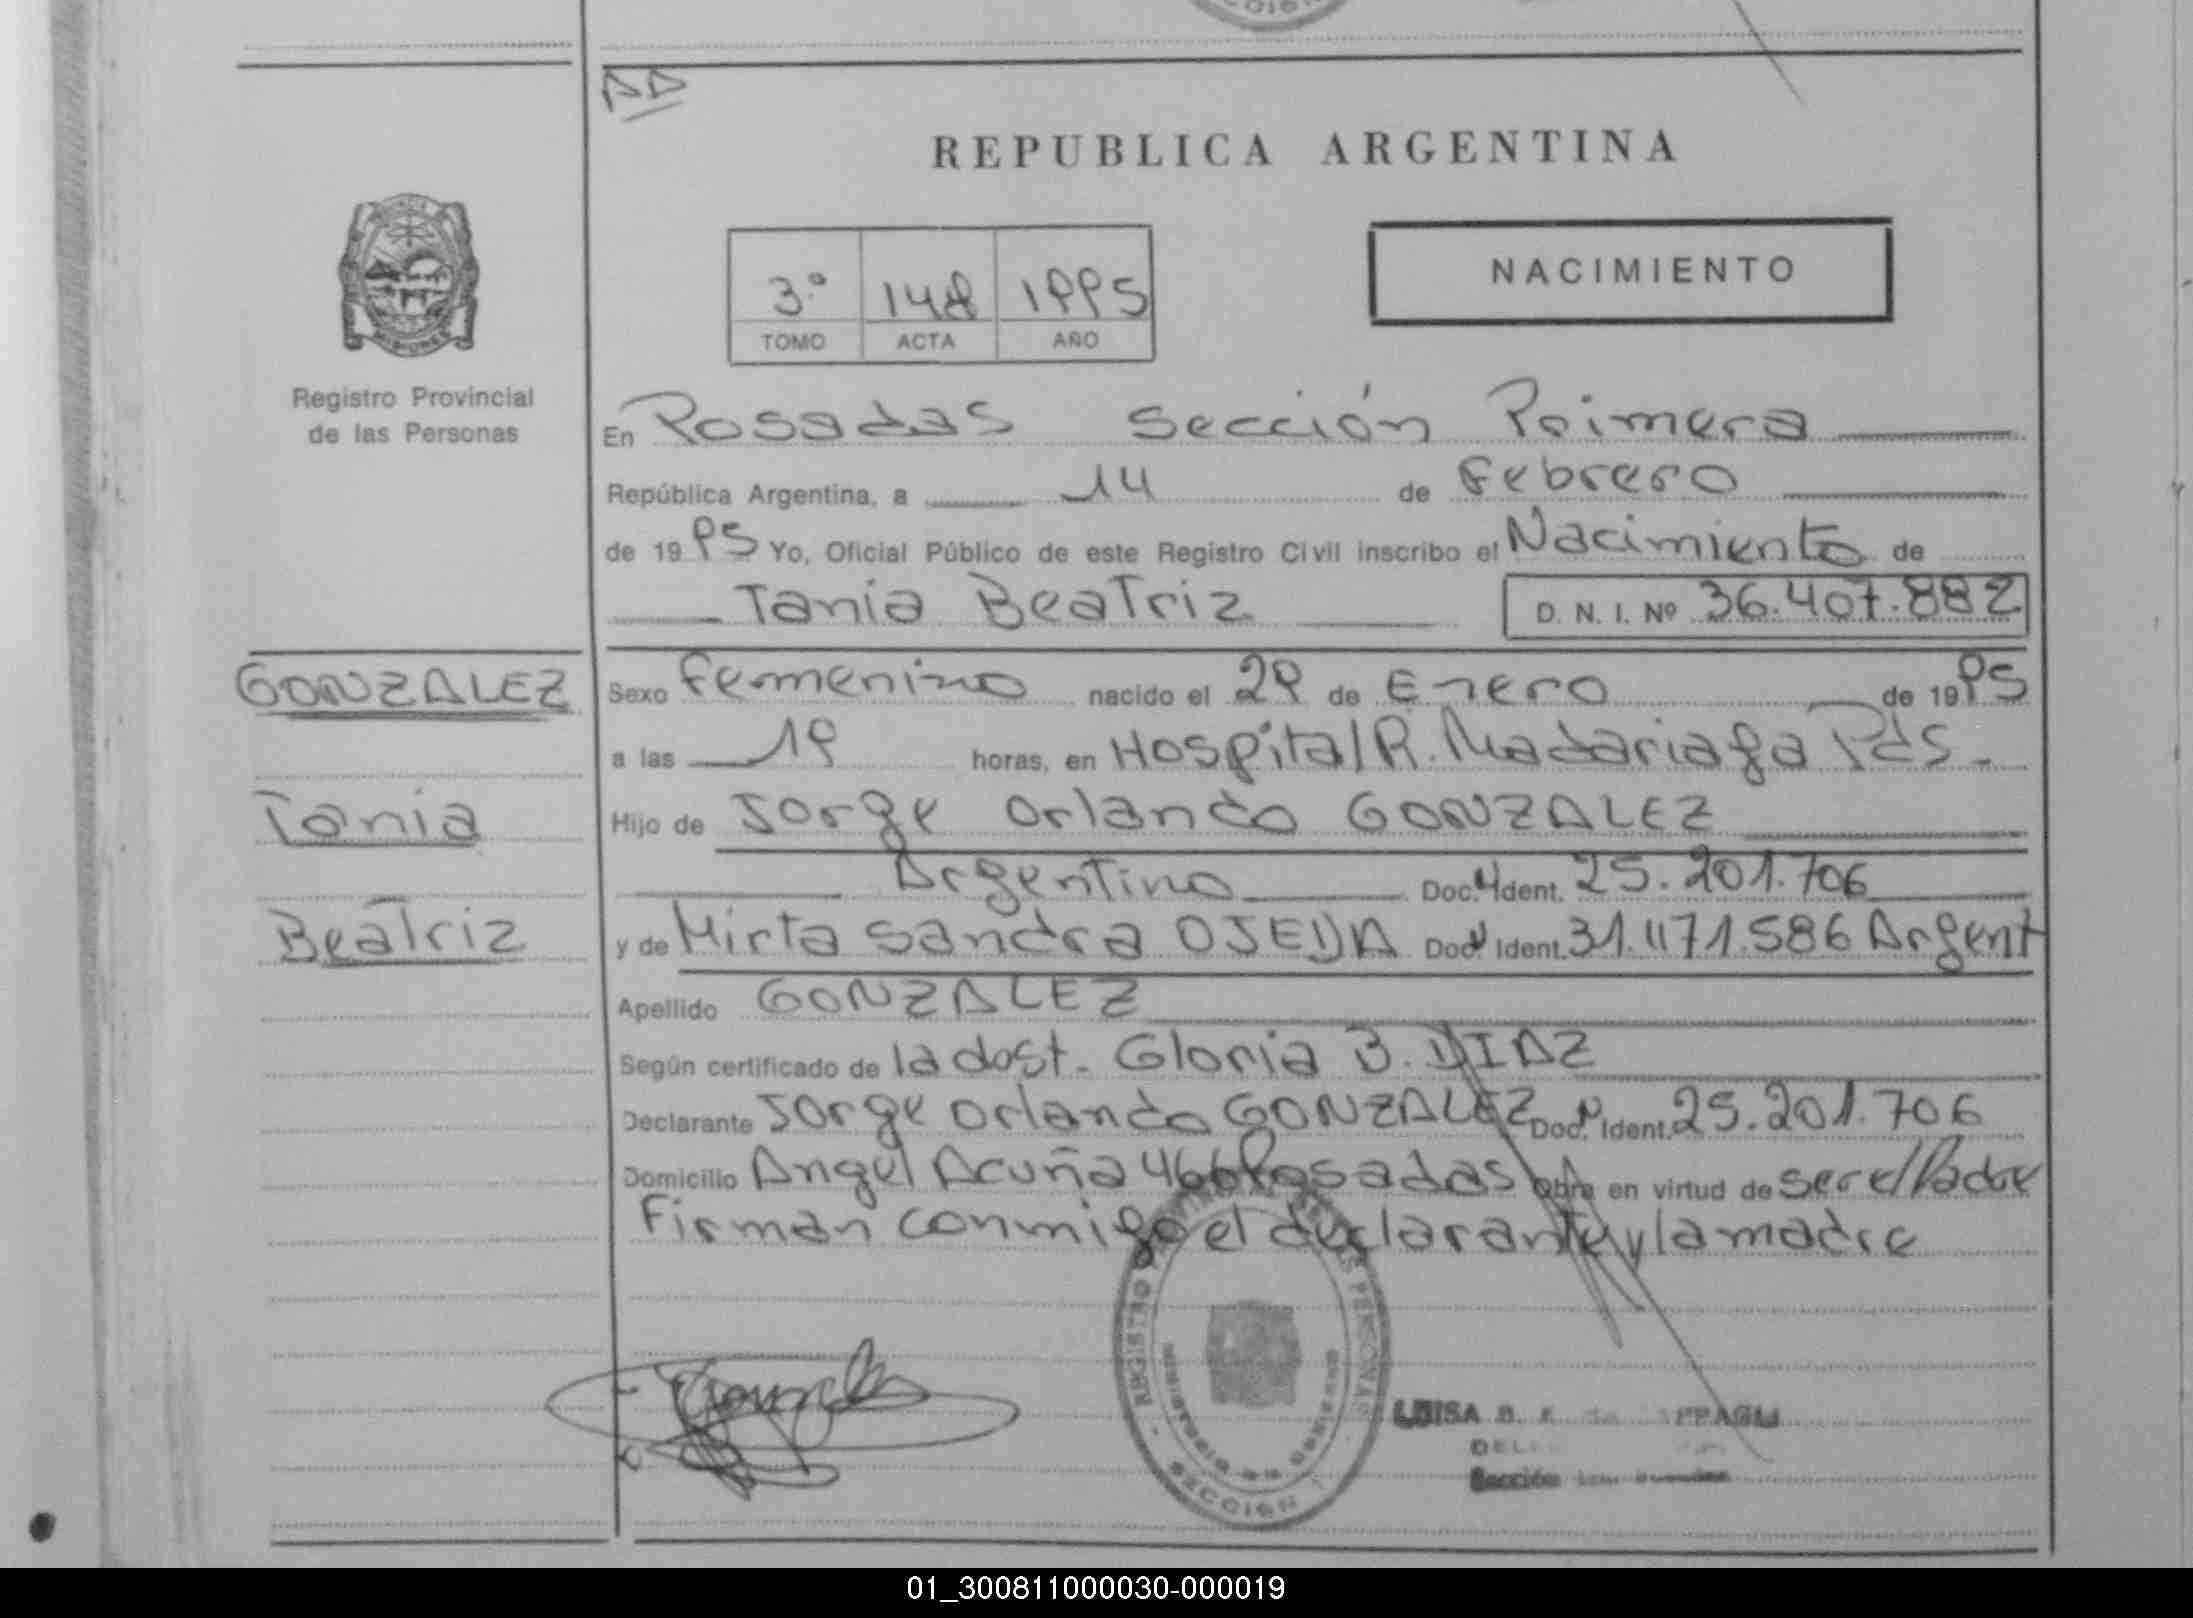 AD
REPUBLICA ARGENTINA
3.º 148 1995
TOMO ACTA AÑO
NACIMIENTO
MISIONES
Registro Provincial
de las Personas
En Posadas Sección Primera
República Argentina, a 14 de Febrero
de 1995 Yo, Oficial Público de este Registro Civil inscribo el Nacimiento de
Tania Beatriz D. N. I. Nº 36.407.882
GONZALEZ
Tania
Beatriz
Sexo Femenino nacido el 29 de Enero de 1995
a las 19 horas, en Hospital R. Madariaga Pds.
Hijo de Jorge Orlando GONZALEZ
Argentino Doc. Ident. 25.201.706
y de Mirta Sandra OJEDA Doc. Ident. 31.471.586 Argent
Apellido GONZALEZ
Según certificado de la dost. Gloria B. DIAZ
Declarante Jorge Orlando GONZALEZ Doc. Ident. 25.201.706
Domicilio Angel Acuña 466 Posadas obra en virtud de ser el Padre
Firman conmigo el declarante y la madre
REGISTRO PERSONAS
MINISTERIO DE GOBIERNO
SECCION
LUISA B.
Sección
01_300811000030-000019